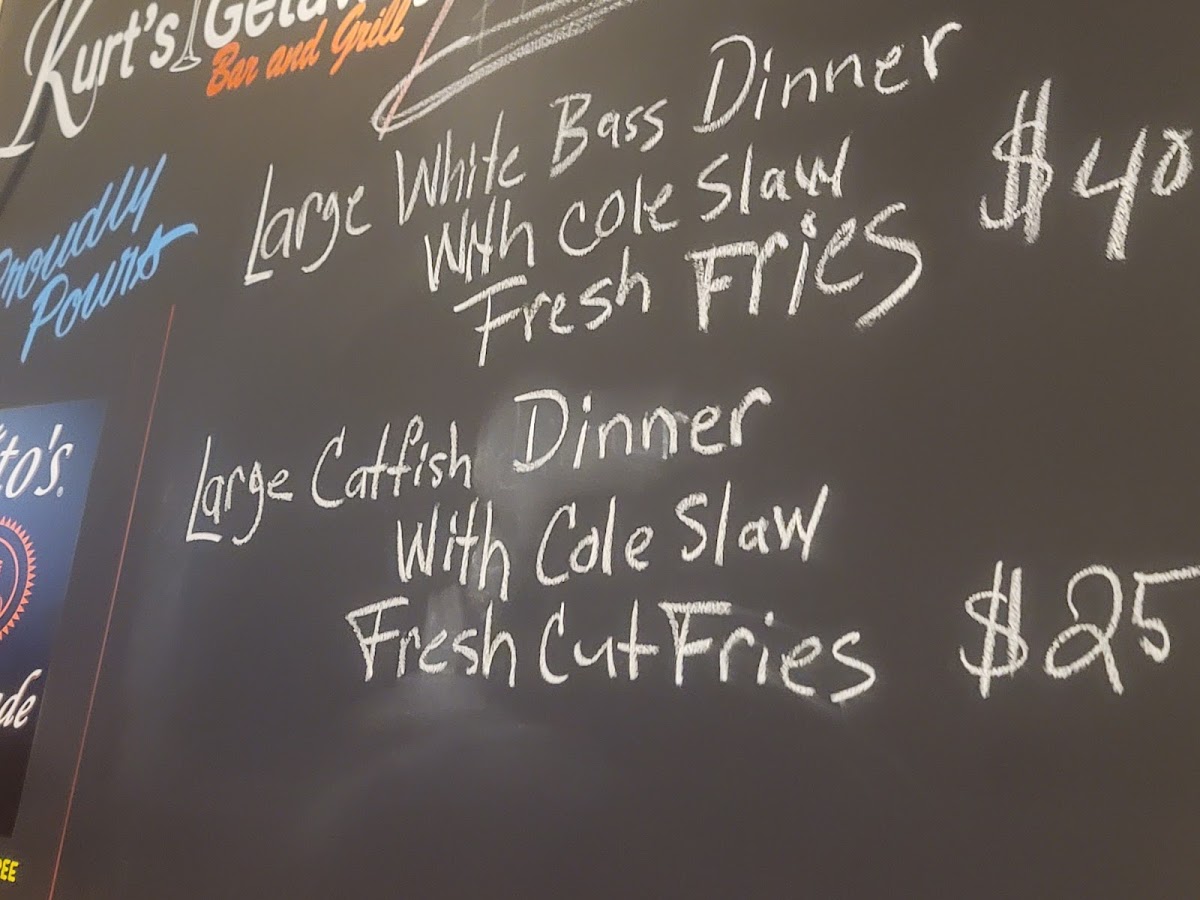 Kurt's
Bar and Grill
Proudly
Pours
Large White Bass Dinner
With Cole Slaw
Fresh Fries
$40
Large Catfish Dinner
With Cole Slaw
Fresh Cut Fries
$25